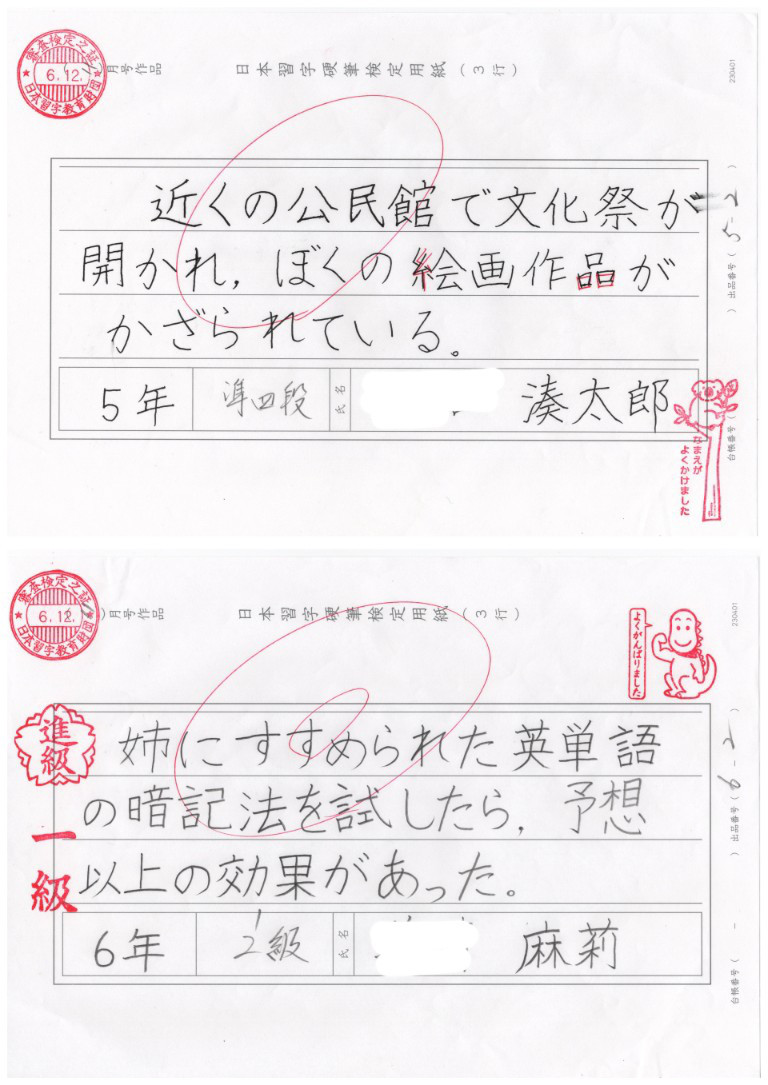 審査検定之証
6.12.
日本習字教育財団
月号作品
日本習字硬筆検定用紙(3行)
230401
近くの公民館で文化祭が
開かれ,ぼくの絵画作品が
かざられている。
5年
準四段
氏名
湊太郎
出品番号(5-2)
台帳番号(
なまえが
よくかけました
審査検定之証
6.12.
日本習字教育財団
月号作品
日本習字硬筆検定用紙(3行)
230401
よくがんばりました
進級
一級
姉にすすめられた英単語
の暗記法を試したら,予想
以上の効果があった。
6年
1
2級
氏名
麻莉
出品番号(6-2)
台帳番号( - )